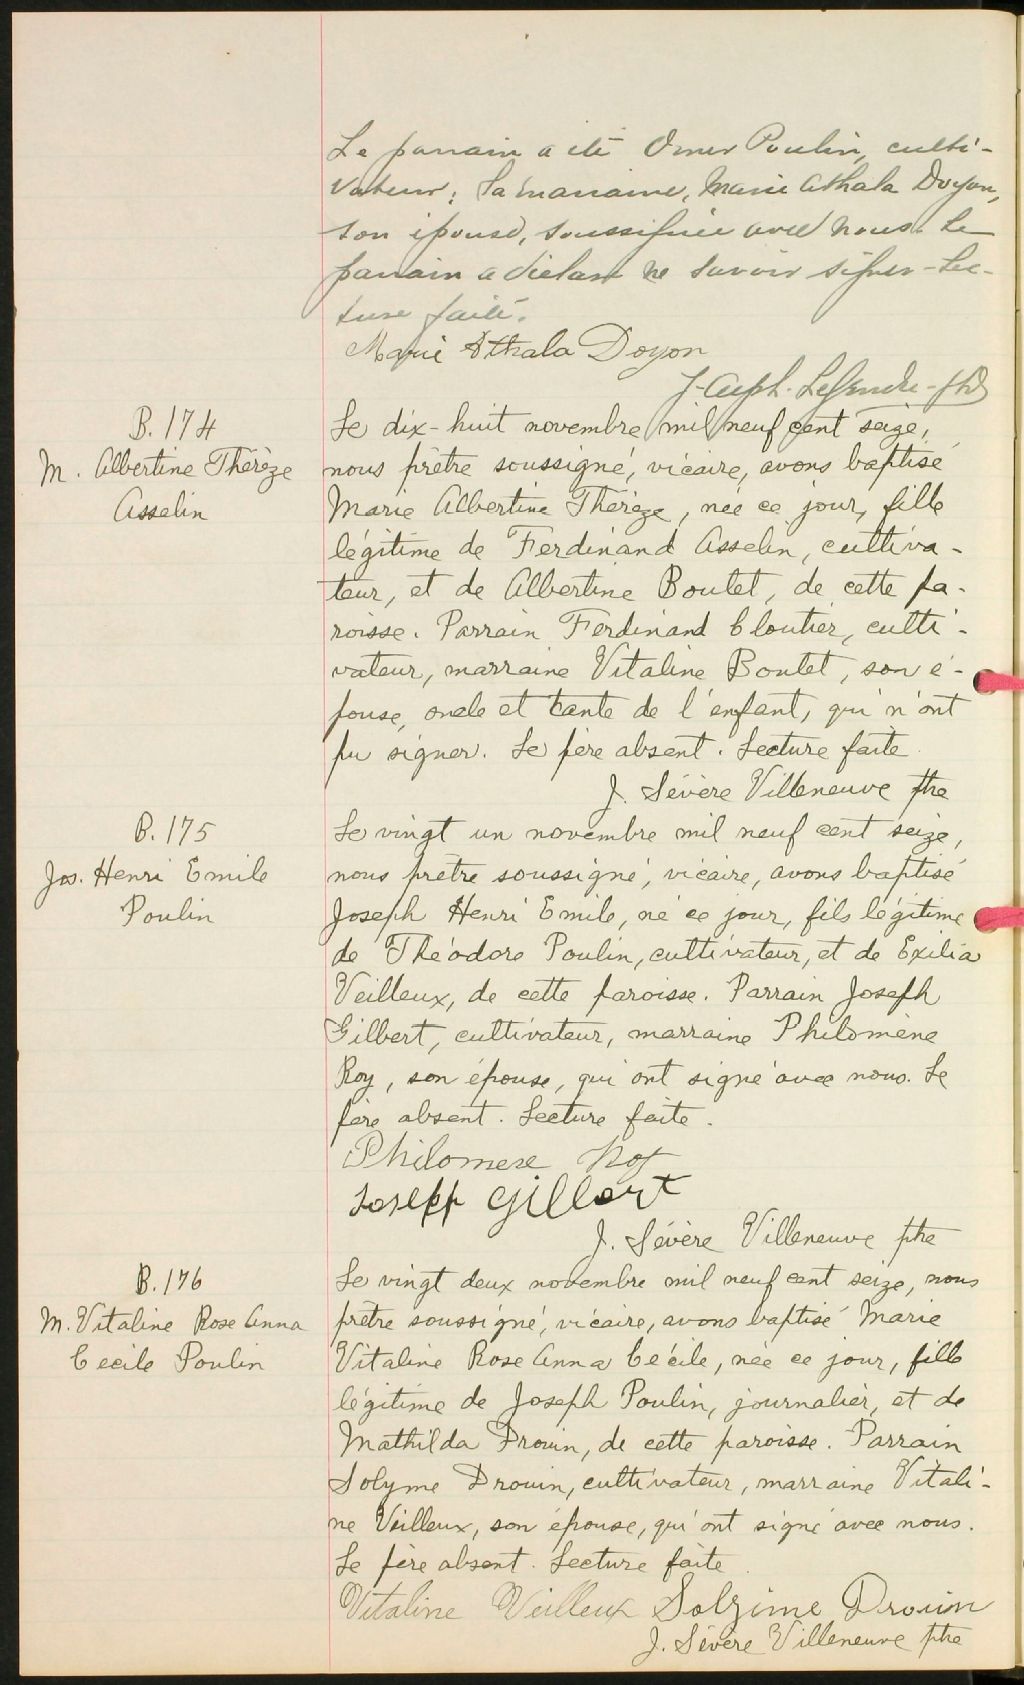 Le parrain a été Omer Poulin, culti-
vateur; la marraine, Marie Athala Doyon,
son épouse, soussignée avec nous. Le
parrain a déclaré ne savoir signer - Lec-
ture faite.
Marie Athala Doyon
J. Alph. Legendre - ptre
B. 174
M. Albertine Thérèze
Asselin
Le dix-huit novembre mil neuf cent seize,
nous prêtre soussigné, vicaire, avons baptisé
Marie Albertine Thérèze, née ce jour, fille
légitime de Ferdinand Asselin, cultiva-
teur, et de Albertine Boutet, de cette pa-
roisse. Parrain Ferdinand Cloutier, culti-
vateur, marraine Vitaline Boutet, son é-
pouse, oncle et tante de l'enfant, qui n'ont
pu signer. Le père absent. Lecture faite
J. Sévère Villeneuve ptre
B. 175
Jos. Henri Emile
Poulin
Le vingt un novembre mil neuf cent seize,
nous prêtre soussigné, vicaire, avons baptisé
Joseph Henri Emile, né ce jour, fils légitime
de Théodore Poulin, cultivateur, et de Exilia
Veilleux, de cette paroisse. Parrain Joseph
Gilbert, cultivateur, marraine Philomène
Roy, son épouse, qui ont signé avec nous. Le
père absent. Lecture faite.
Philomene Roy
Joseph Gilbert
J. Sévère Villeneuve ptre
B. 176
M. Vitaline Rose Anna
Cecile Poulin
Le vingt deux novembre mil neuf cent seize, nous
prêtre soussigné, vicaire, avons baptisé Marie
Vitaline Rose Anna Cécile, née ce jour, fille
légitime de Joseph Poulin, journalier, et de
Mathilda Drouin, de cette paroisse. Parrain
Solyme Drouin, cultivateur, marraine Vitali-
ne Veilleux, son épouse, qui ont signé avec nous.
Le père absent. Lecture faite
Vitaline Veilleux Solzime Drouin
J. Sévère Villeneuve ptre